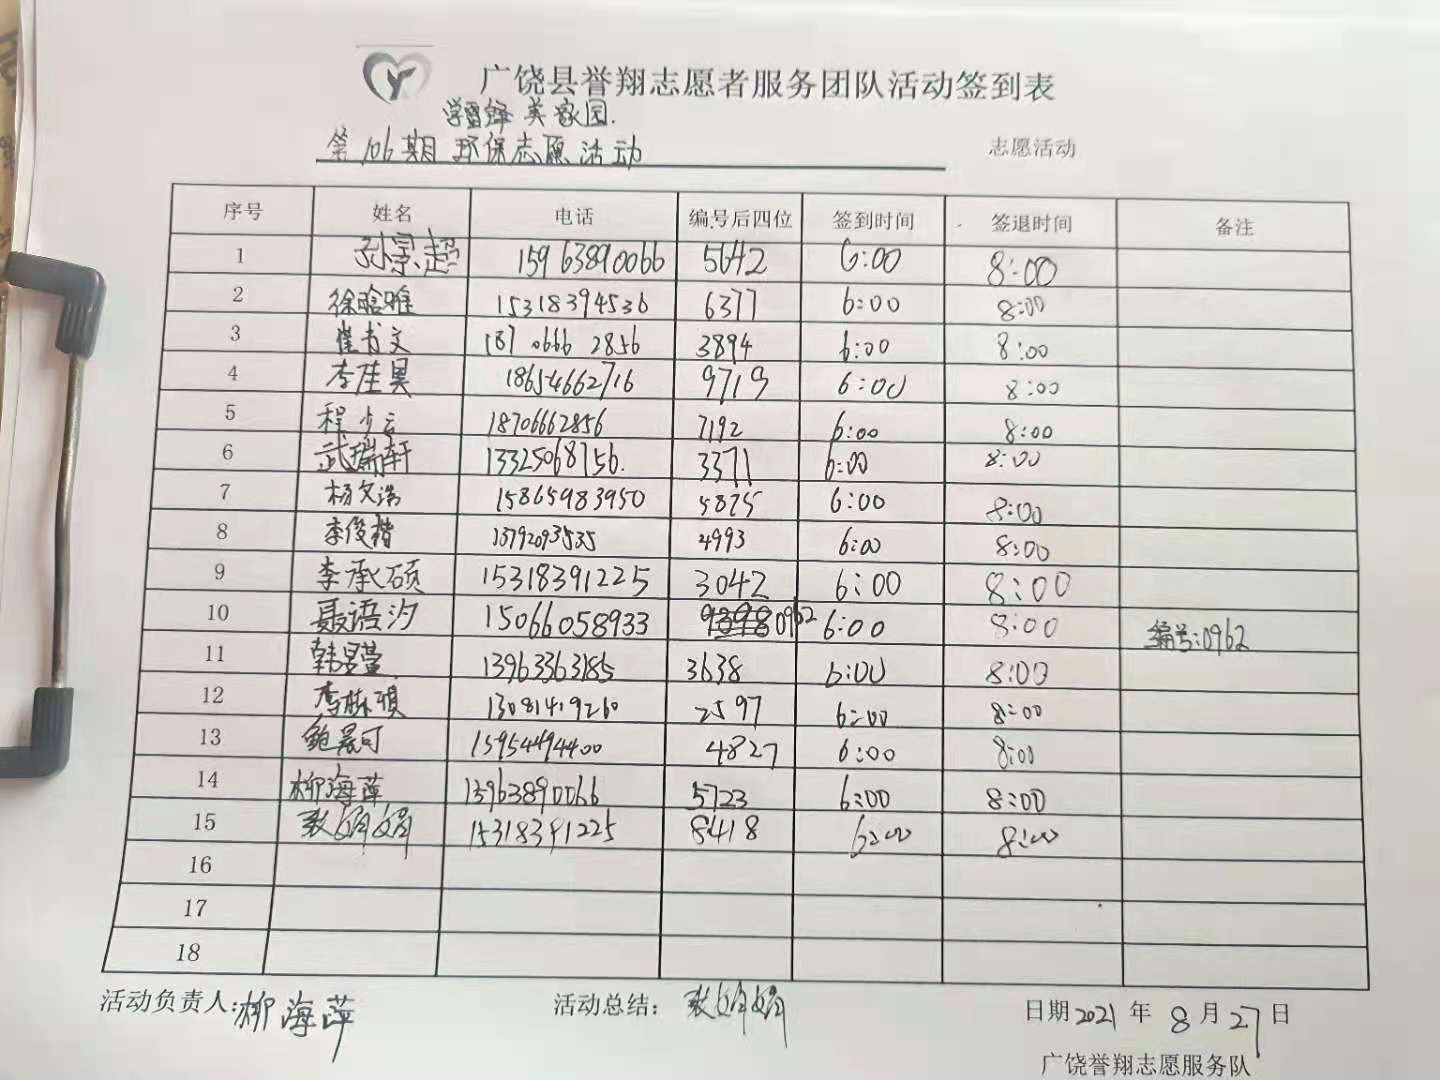 广饶县誉翔志愿者服务团队活动签到表
学雷锋 美家园.
第106期 环保志愿活动 志愿活动
序号 姓名 电话 编号后四位 签到时间 签退时间 备注
1 孙宗超 15963890066 5642 6:00 8:00
2 徐晗唯 15318394536 6377 6:00 8:00
3 崔书文 187 0666 2856 3894 6:00 8:00
4 李佳昊 18654662716 9719 6:00 8:00
5 程少云 18706662856 7192 6:00 8:00
6 武瑞轩 13325068756. 3371 6:00 8:00
7 杨文浩 15865983950 5875 6:00 8:00
8 李俊楷 13792093535 4993 6:00 8:00
9 李承硕 15318391225 3042 6:00 8:00
10 聂语汐 15066058933 0962 6:00 8:00 编号:0962
11 韩昱萱 13963363185 3638 6:00 8:00
12 李 13081419260 2597 6:00 8:00
13 鲍晨可 15954494400 4827 6:00 8:00
14 柳海萍 13963890066 5723 6:00 8:00
15 15318391225 8418 6:00 8:00
16
17
18
活动负责人:柳海萍 活动总结: 日期2021年8月27日
广饶誉翔志愿服务队